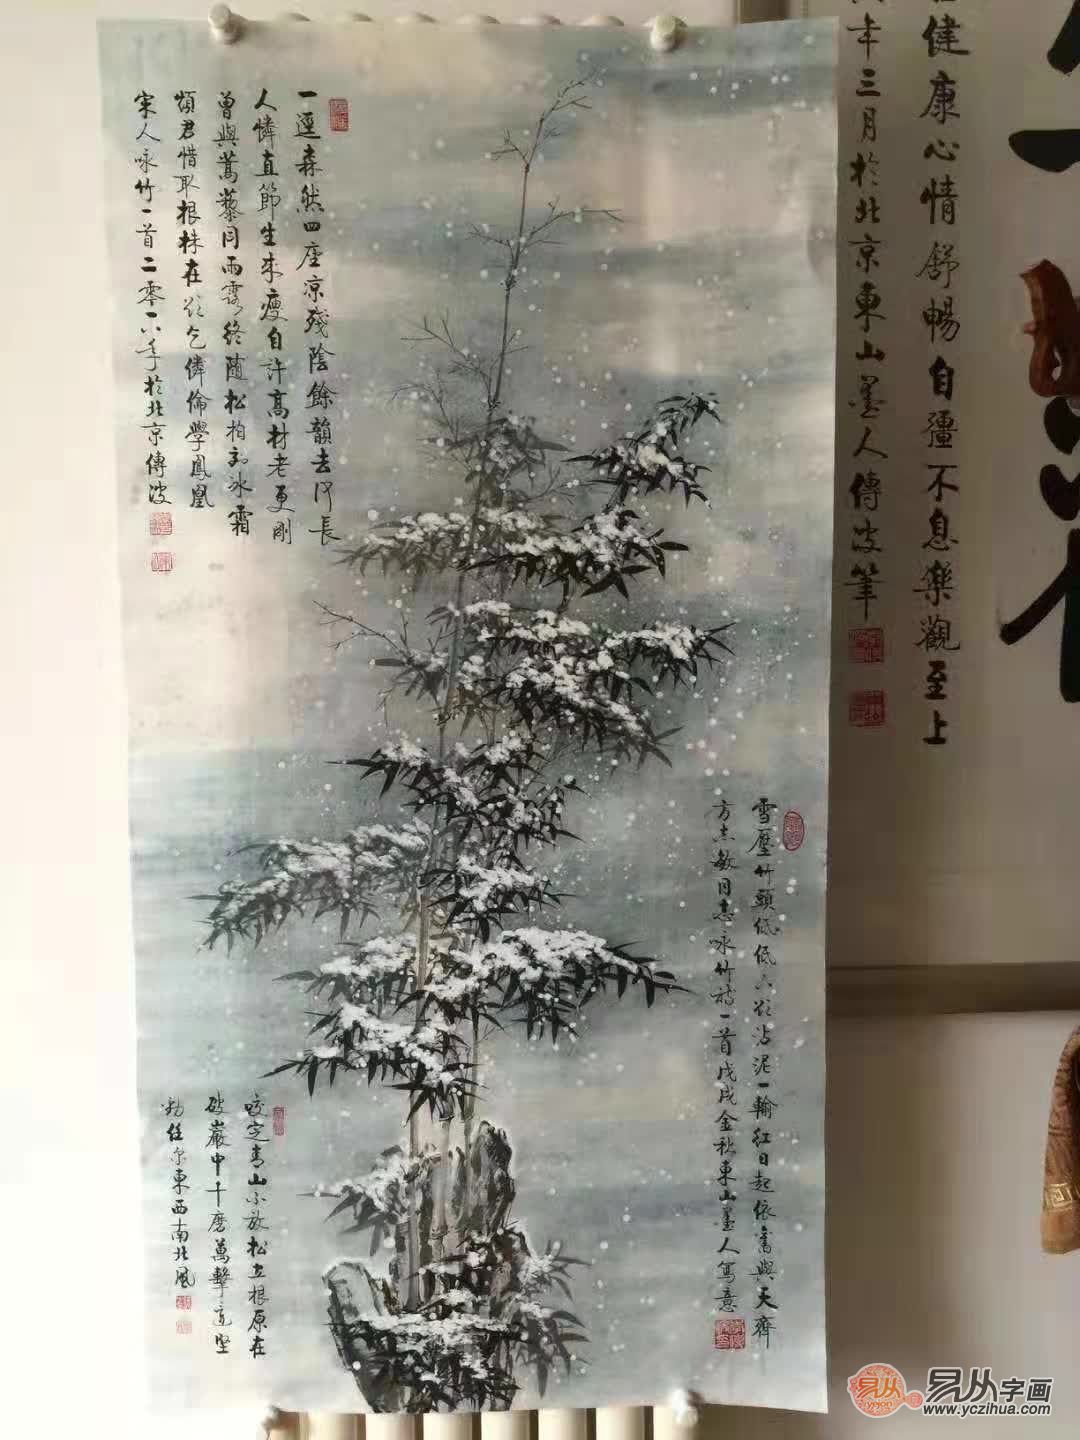 一逕森然四座凉殘陰餘韻去何長
人憐直節生来瘦自許高材老更剛
曾與蒿藜同雨露終随松柏到冰霜
煩君惜取根株在欲乞憐倫學鳳凰
宋人咏竹一首二零一八年於北京傳波
雪壓竹頭低低下欲沾泥一輪红日起依舊與天齊
方志敏同志咏竹诗一首戊戌金秋東山墨人寫意
咬定青山不放松立根原在
破巖中千磨萬擊還堅
勁任尔東西南北風
健康心情舒暢自疆不息樂觀至上
年三月於北京東山墨人傳波筆
易从字画
www.yczihua.com